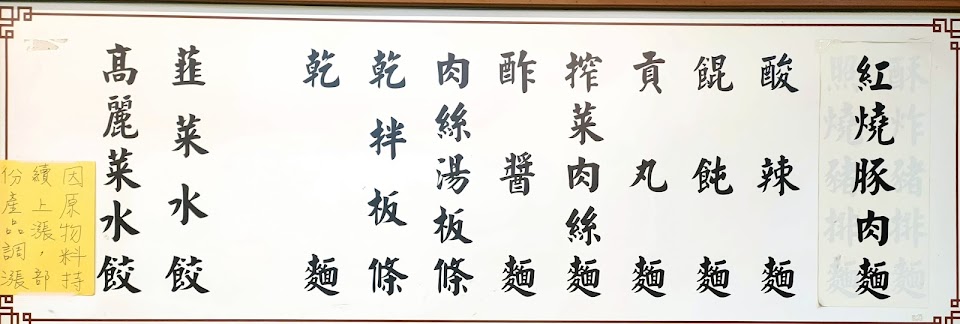 酥炸豬排麵
紅燒豚肉麵
照燒豬排麵
酸辣麵
餛飩麵
貢丸麵
搾菜肉絲麵
酢醬麵
肉絲湯板條
乾拌板條
乾麵
韮菜水餃
高麗菜水餃
因原物料持
續上漲，部
份產品調漲